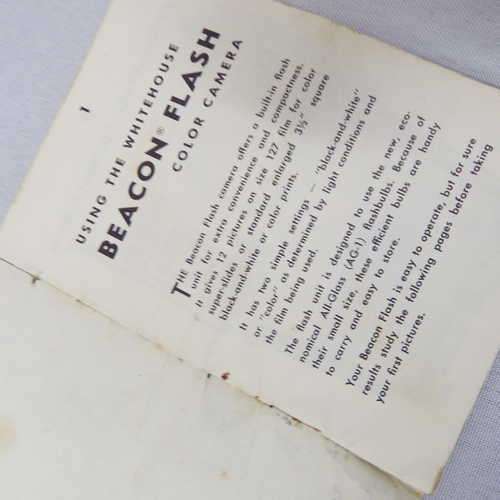 1
USING THE WHITEHOUSE
BEACON® FLASH
COLOR CAMERA
THE Beacon Flash camera offers a built-in flash
unit for extra convenience and compactness.
It gives 12 pictures on size 127 film for color
super-slides or standard enlarged 3½" square
black-and-white or color prints.
It has two simple settings — "black-and-white"
or "color" as determined by light conditions and
the film being used.
The flash unit is designed to use the new, eco-
nomical All-Glass (AG-1) flashbulbs. Because of
their small size, these efficient bulbs are handy
to carry and easy to store.
Your Beacon Flash is easy to operate, but for sure
results study the following pages before taking
your first pictures.